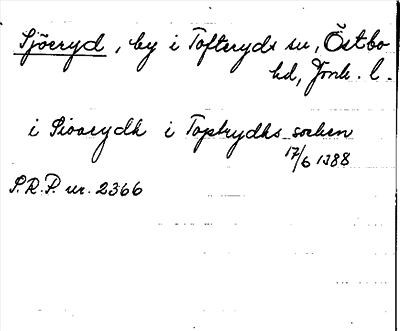 Sjöeryd, by i Tofteryds sn, Östbo
hd, Jönk. l.
i Siöarydh i Toptrydhs socken
17/6 1388
S.R.P. nr. 2366